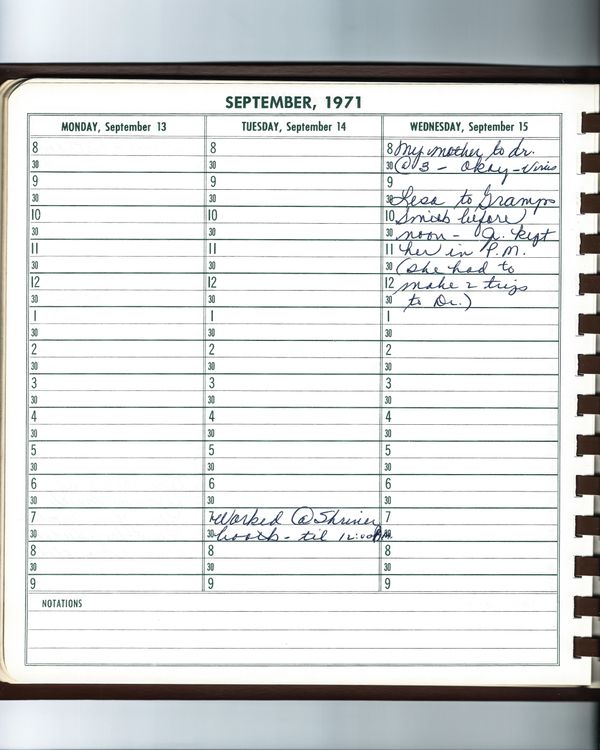 SEPTEMBER, 1971
MONDAY, September 13
8
30
9
30
10
30
11
30
12
30
1
30
2
30
3
30
4
30
5
30
6
30
7
30
8
30
9
TUESDAY, September 14
8
30
9
30
10
30
11
30
12
30
1
30
2
30
3
30
4
30
5
30
6
30
7 Worked @ Shrine
30 booth - til 12:00 P.M.
8
30
9
WEDNESDAY, September 15
8 My mother to dr.
30 @ 3 - okay - Virus
9
30 Lesa to Gramps
10 Smith before
30 noon - A. kept
11 her in P.M.
30 (she had to
12 make 2 trips
30 to Dr.)
1
30
2
30
3
30
4
30
5
30
6
30
7
30
8
30
9
NOTATIONS